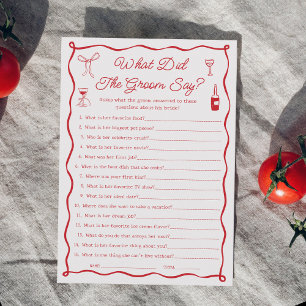 What Did
The Groom Say?
Guess what the groom answered to these
questions about his bride!
1. What is her favorite food?
2. What is her biggest pet peeve?
3. Who is her celebrity crush?
4. What is her favorite movie?
5. What was her first job?
6. What is the best dish that she cooks?
7. Where was your first kiss?
8. What is her favorite TV show?
9. What is her shoe size?
10. Where does she want to take a vacation?
11. What is her dream job?
12. What is her favorite ice cream flavor?
13. What do you do that annoys her most?
14. What is her favorite thing about you?
15. What is one thing she can't live without?